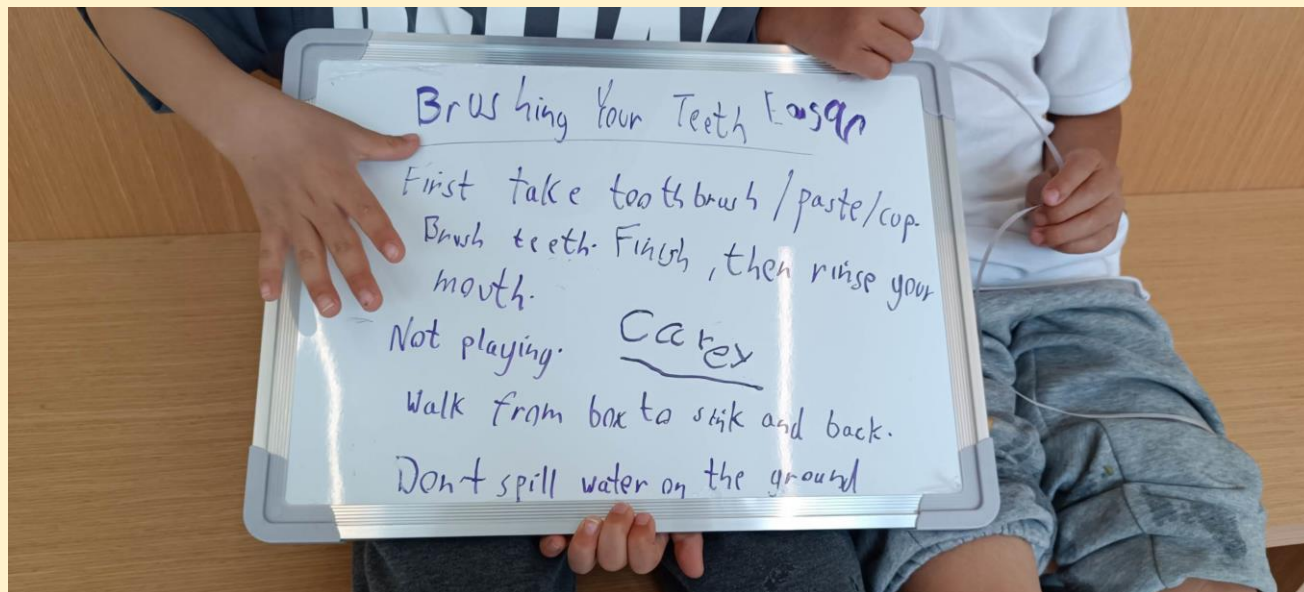 Brushing Your Teeth
First take toothbrush/paste/cup.
Brush teeth. Finish, then rinse your
mouth.
Not playing.
Carey
Walk from box to sink and back.
Don't spill water on the ground